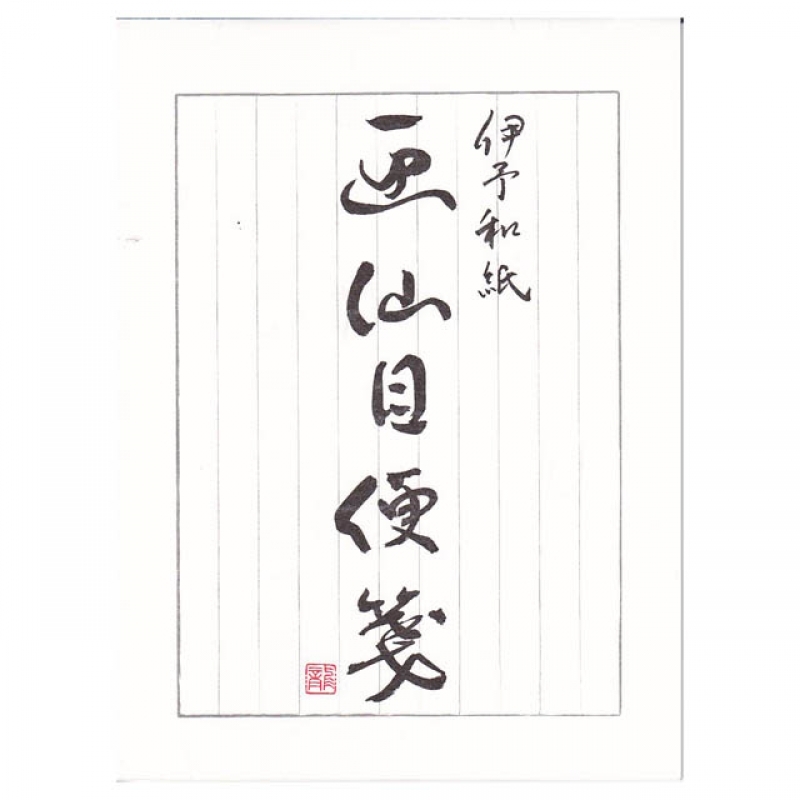 伊予和紙
画仙目便箋
龍